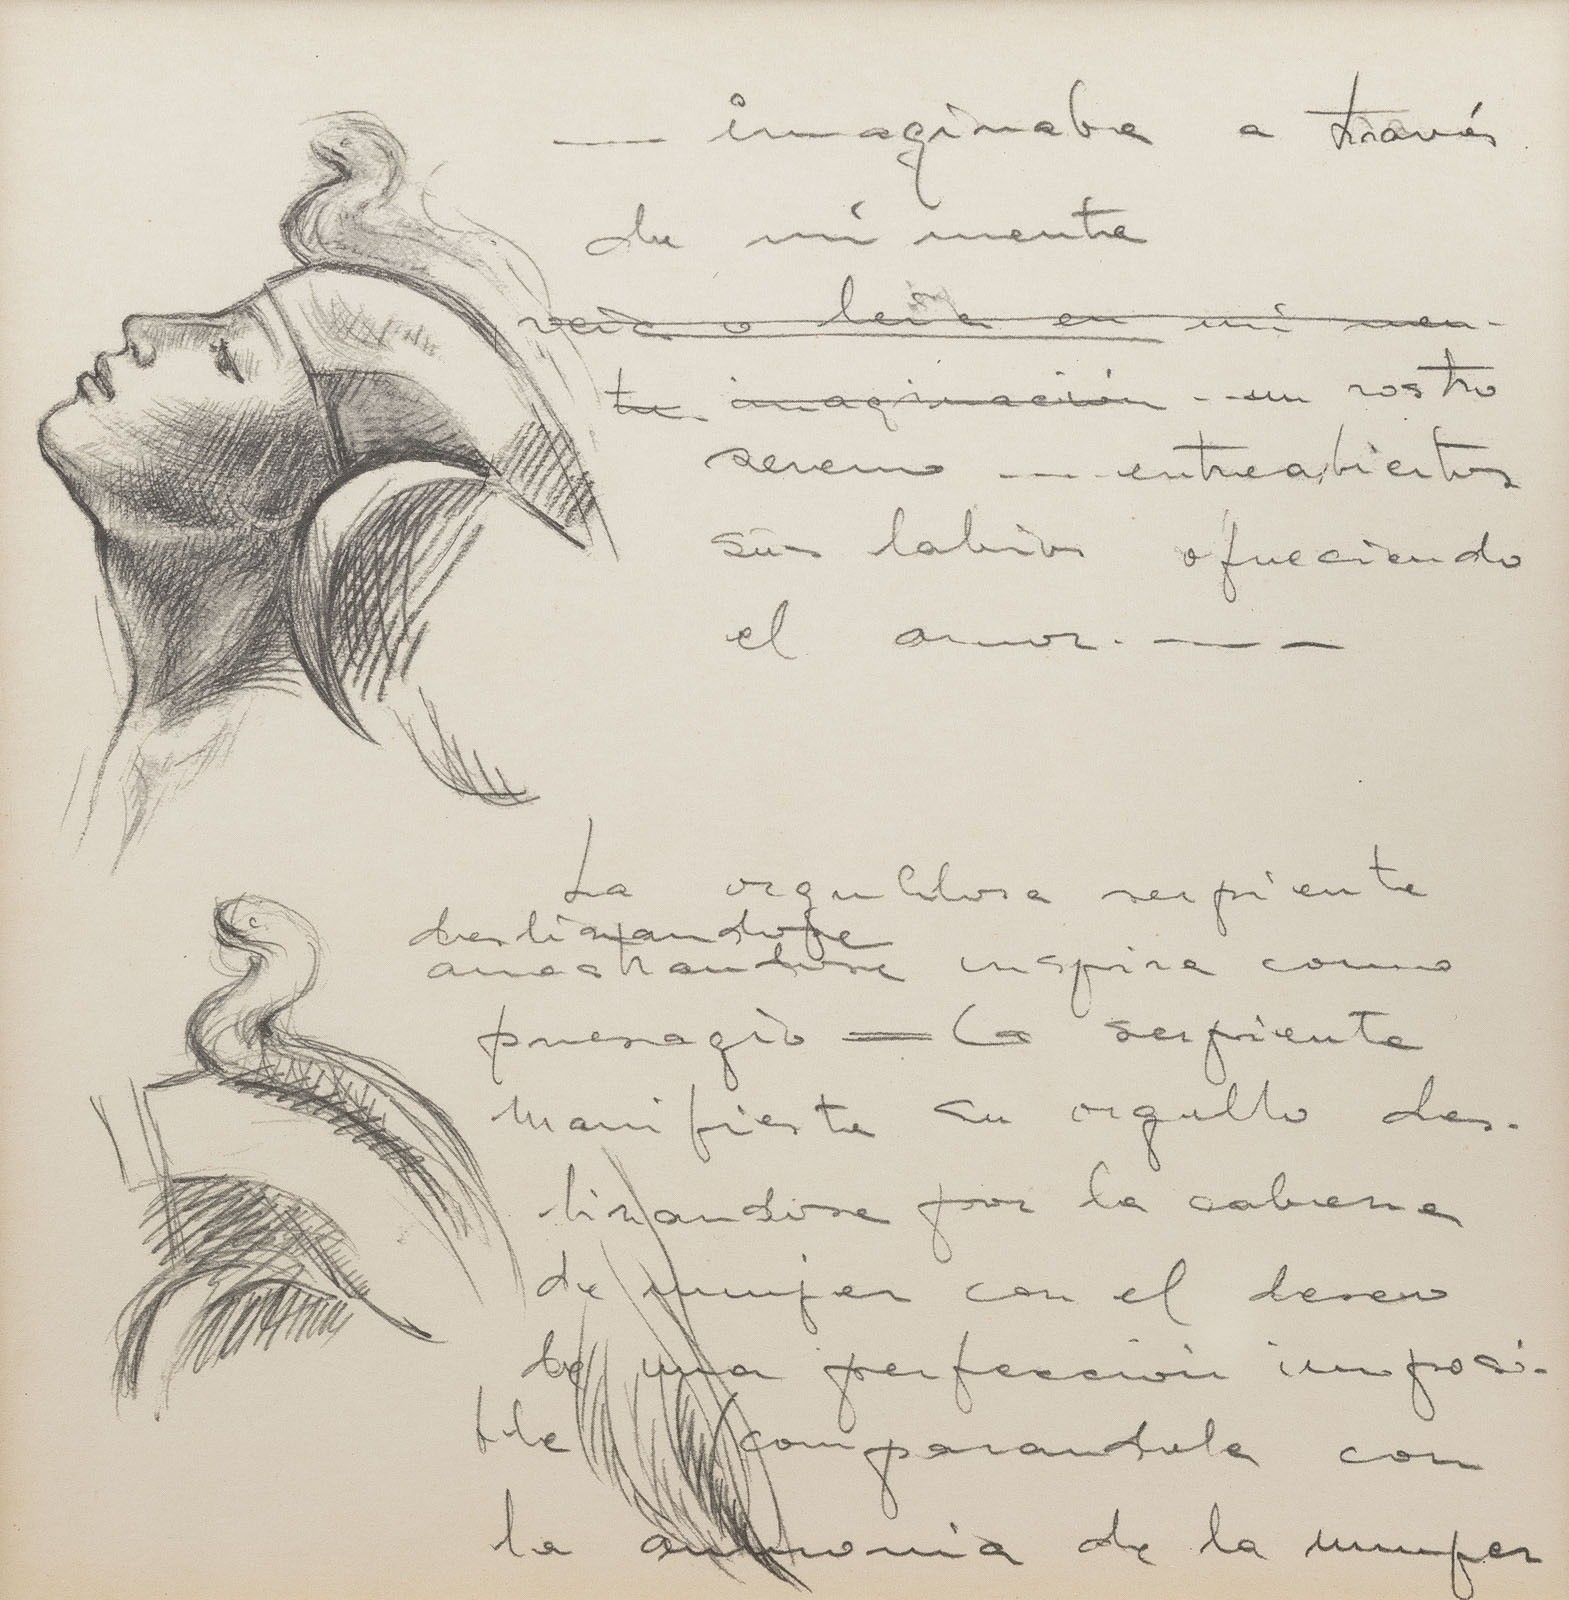 — imaginaba a través
de mi mente
veia o leia en mi men-
te imaginación - un rostro
sereno — entreabiertos
sus labios ofreciendo
el amor. — —
La orgullosa serpiente
deslizandose
arrastrandose inspira como
presagio = La serpiente
manifiesta su orgullo des-
lizandose por la cabeza
de mujer con el deseo
de una perfección imposi-
ble comparandola con
la armonia de la mujer